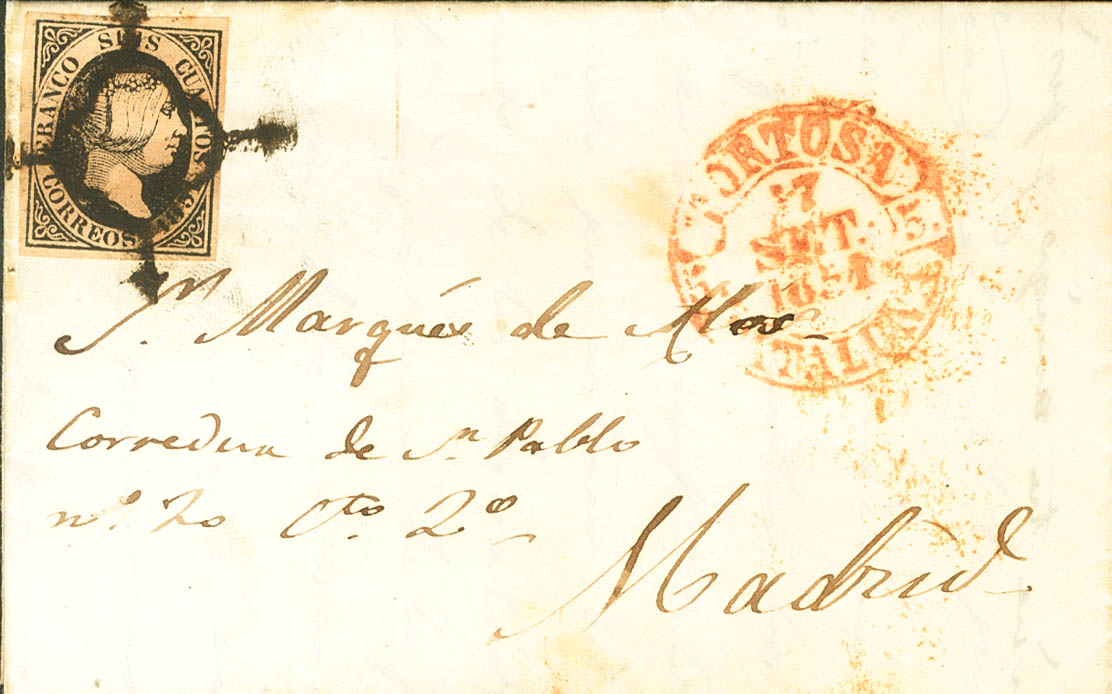 FRANCO SEIS CUARTOS
CORREOS 1851
TORTOSA
17
SET.
1851
Sr. Marqués de Alos
Corredera de Sn. Pablo
nº. 20 Cto. 2º
Madrid